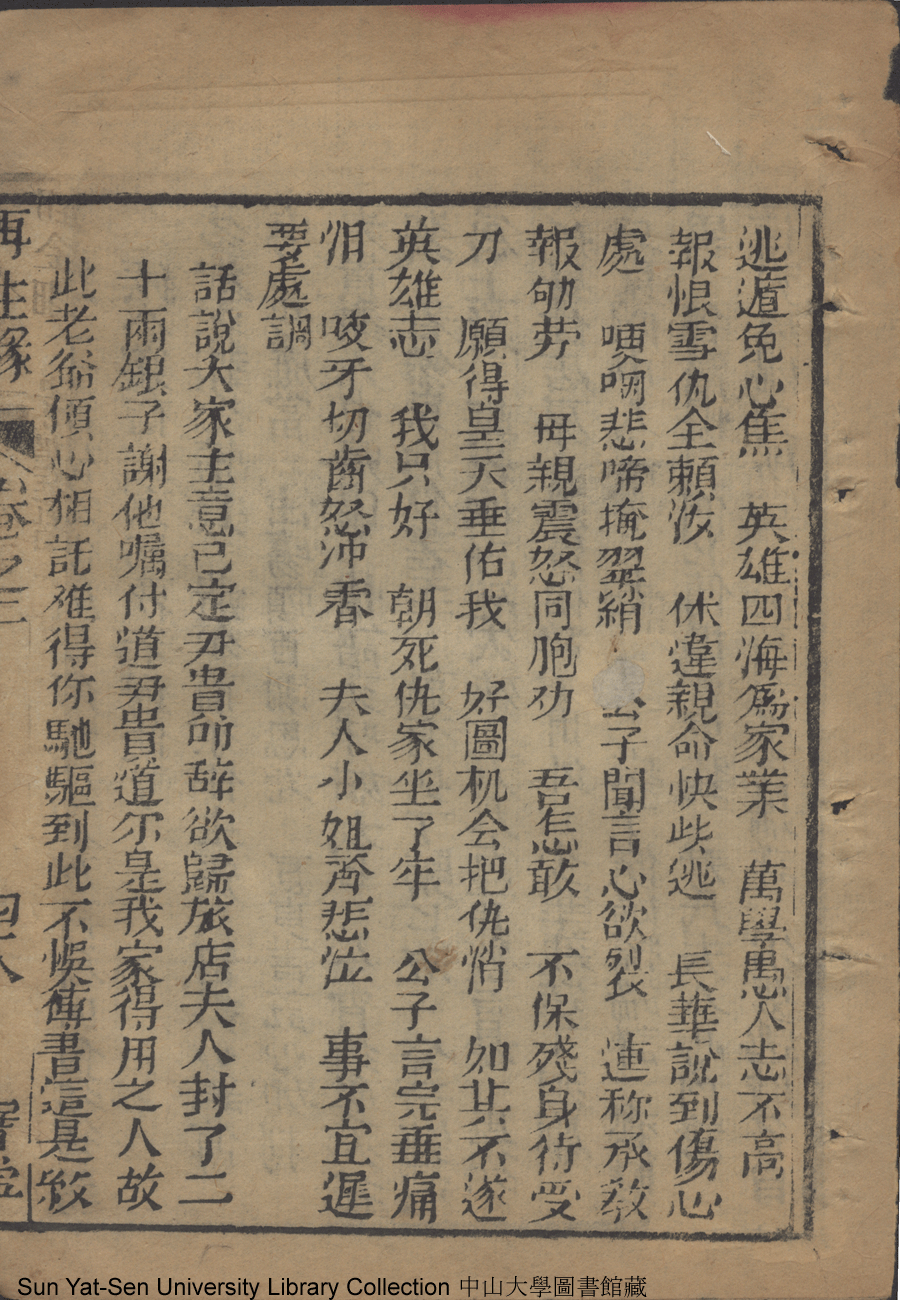 逃遁免心焦　英雄四海爲家業　萬學愚人志不高
報恨雪仇全賴汝　休違親命快些逃　長華說到傷心
處　哽咽悲啼掩翠綃　公子聞言心欲裂　連称承教
報劬劳　母親震怒同胞劝　吾怎敢　不保殘身待受
刀　願得皇天垂佑我　好圖机会把仇悄　如其不遂
英雄志　我只好　朝死仇家坐了牢　公子言完垂痛
泪　咬牙切齒怒冲霄　夫人小姐齊悲泣　事不宜遲
要處調
話說大家主意已定尹貴叩辞欲歸旅店夫人封了二
十兩銀子謝他囑付道尹貴道尔是我家得用之人故
此老爺傾心相託难得你馳驅到此不悞傳書這是敘
再生緣　卷之三　四八　寶
Sun Yat-Sen University Library Collection 中山大學圖書館藏